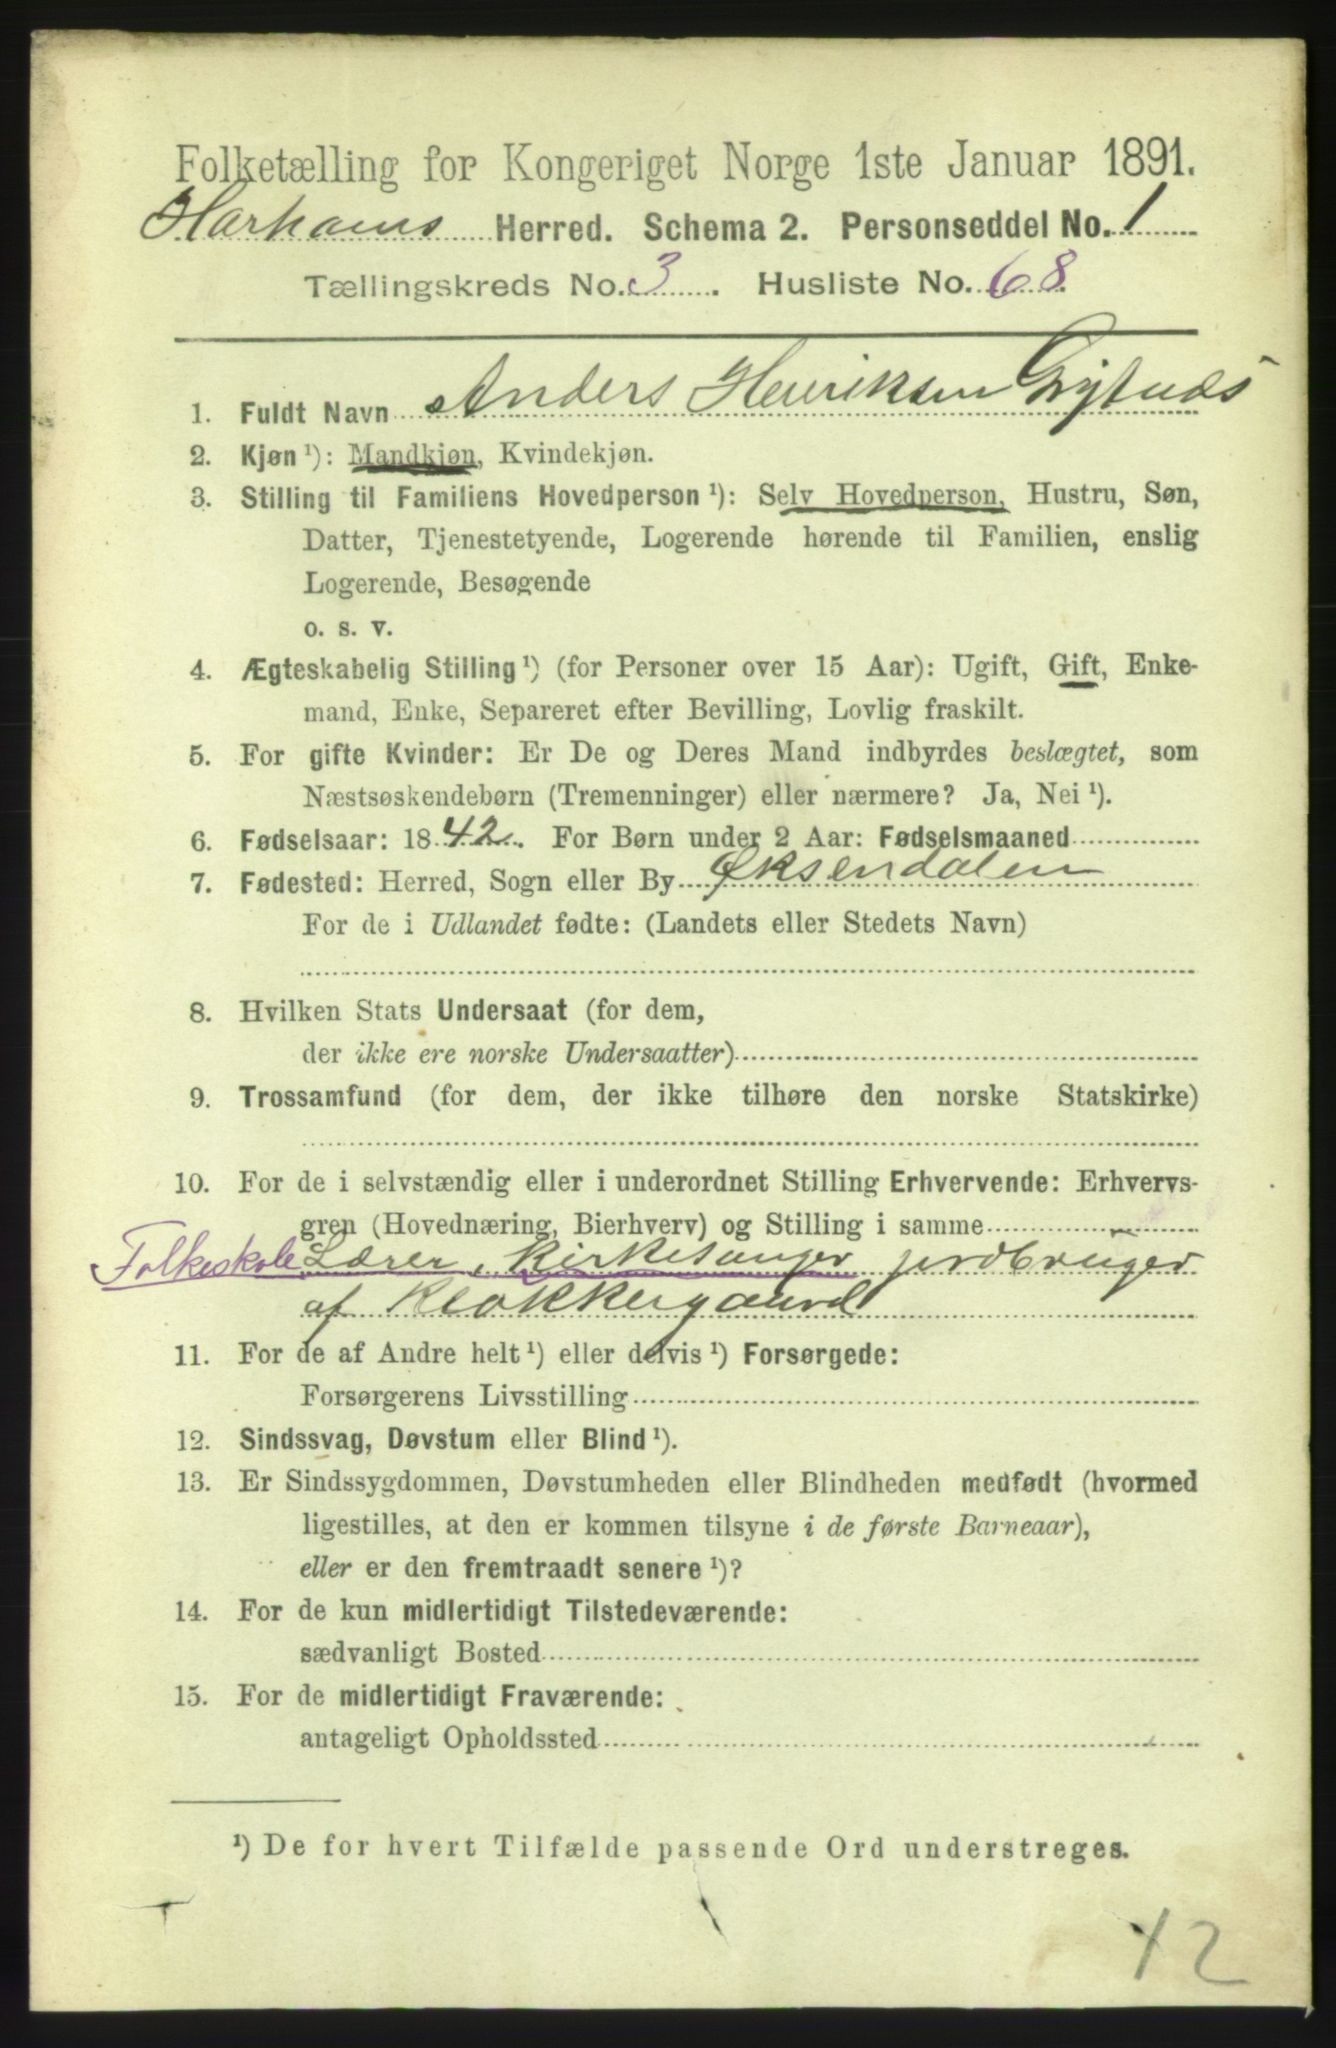 Folketælling for Kongeriget Norge 1ste Januar 1891.
Harhams Herred. Schema 2. Personseddel No. 1
Tællingskreds No. 3. Husliste No. 68.
1. Fuldt Navn Anders Henriksen
2. Kjøn ¹): Mandkjøn, Kvindekjøn.
3. Stilling til Familiens Hovedperson ¹): Selv Hovedperson, Hustru, Søn,
Datter, Tjenestetyende, Logerende hørende til Familien, enslig
Logerende, Besøgende
o. s. v.
4. Ægteskabelig Stilling ¹) (for Personer over 15 Aar): Ugift, Gift, Enke-
mand, Enke, Separeret efter Bevilling, Lovlig fraskilt.
5. For gifte Kvinder: Er De og Deres Mand indbyrdes beslægtet, som
Næstsøskendebørn (Tremenninger) eller nærmere? Ja, Nei ¹).
6. Fødselsaar: 1842. For Børn under 2 Aar: Fødselsmaaned
7. Fødested: Herred, Sogn eller By Øksendalen
For de i Udlandet fødte: (Landets eller Stedets Navn)
8. Hvilken Stats Undersaat (for dem,
der ikke ere norske Undersaatter)
9. Trossamfund (for dem, der ikke tilhøre den norske Statskirke)
10. For de i selvstændig eller i underordnet Stilling Erhvervende: Erhvervs-
gren (Hovednæring, Bierhverv) og Stilling i samme
Folkeskole Lærer, Kirkesanger jordbruger
af Klokkergaard
11. For de af Andre helt ¹) eller delvis ¹) Forsørgede:
Forsørgerens Livsstilling
12. Sindssvag, Døvstum eller Blind ¹).
13. Er Sindssygdommen, Døvstumheden eller Blindheden medfødt (hvormed
ligestilles, at den er kommen tilsyne i de første Barneaar),
eller er den fremtraadt senere ¹)?
14. For de kun midlertidigt Tilstedeværende:
sædvanligt Bosted
15. For de midlertidigt Fraværende:
antageligt Opholdssted
¹) De for hvert Tilfælde passende Ord understreges.
42